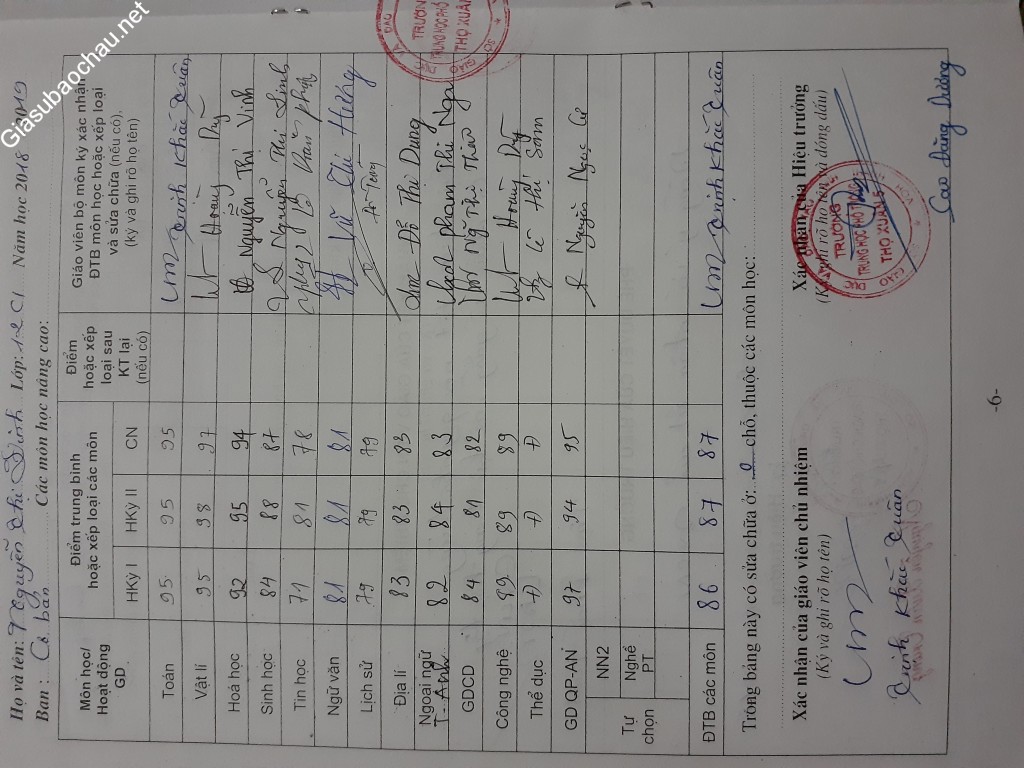 Giasubaochau.net
Họ và tên: Nguyễn Thị Lớp: 12C1 Năm học 2018 2019
Ban: Cơ bản Các môn học nâng cao:
Môn học/ Hoạt động GD
Điểm trung bình hoặc xếp loại các môn
HKỳ I HKỳ II CN
Điểm hoặc xếp loại sau KT lại (nếu có)
Giáo viên bộ môn ký xác nhận ĐTB môn học hoặc xếp loại và sửa chữa (nếu có), (ký và ghi rõ họ tên)
Toán 95 95 95 Trịnh Khắc Xuân
Vật lí 95 98 97 Hoàng Duy
Hoá học 92 95 94 Nguyễn Thị Vinh
Sinh học 84 88 87 Nguyễn Thị Sinh
Tin học 71 81 78
Ngữ văn 81 81 81 Vũ Thị Hương
Lịch sử 79 79 79
Địa lí 83 83 83 Đỗ Thị Dung
Ngoại ngữ T. Anh 82 84 83 Phạm Thị
GDCD 84 81 82
Công nghệ 89 89 89 Hoàng Duy
Thể dục Đ Đ Đ
GD QP-AN 97 94 95 Nguyễn Ngọc
Tự chọn
NN2
Nghề PT
ĐTB các môn 86 87 87 Trịnh Khắc Xuân
Trong bảng này có sửa chữa ở: 0 chỗ, thuộc các môn học:
Xác nhận của giáo viên chủ nhiệm
(Ký và ghi rõ họ tên)
Trịnh Khắc Xuân
Xác nhận của Hiệu trưởng
(Ký, ghi rõ họ tên và đóng dấu)
TRƯỜNG
TRUNG HỌC PHỔ THÔNG
THỌ XUÂN
Cao Đăng Dương
-6-